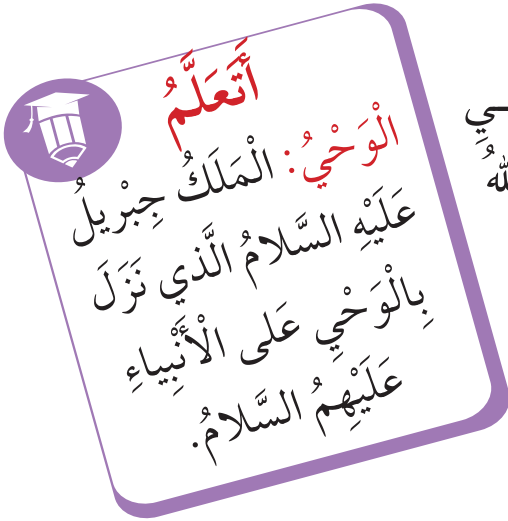 أَتَعَلَّمُ
الْوَحْيُ: الْمَلَكُ جِبْرِيلُ
عَلَيْهِ السَّلامُ الَّذي نَزَلَ
بِالْوَحْيِ عَلى الْأَنْبِياءِ
عَلَيْهِمُ السَّلامُ.